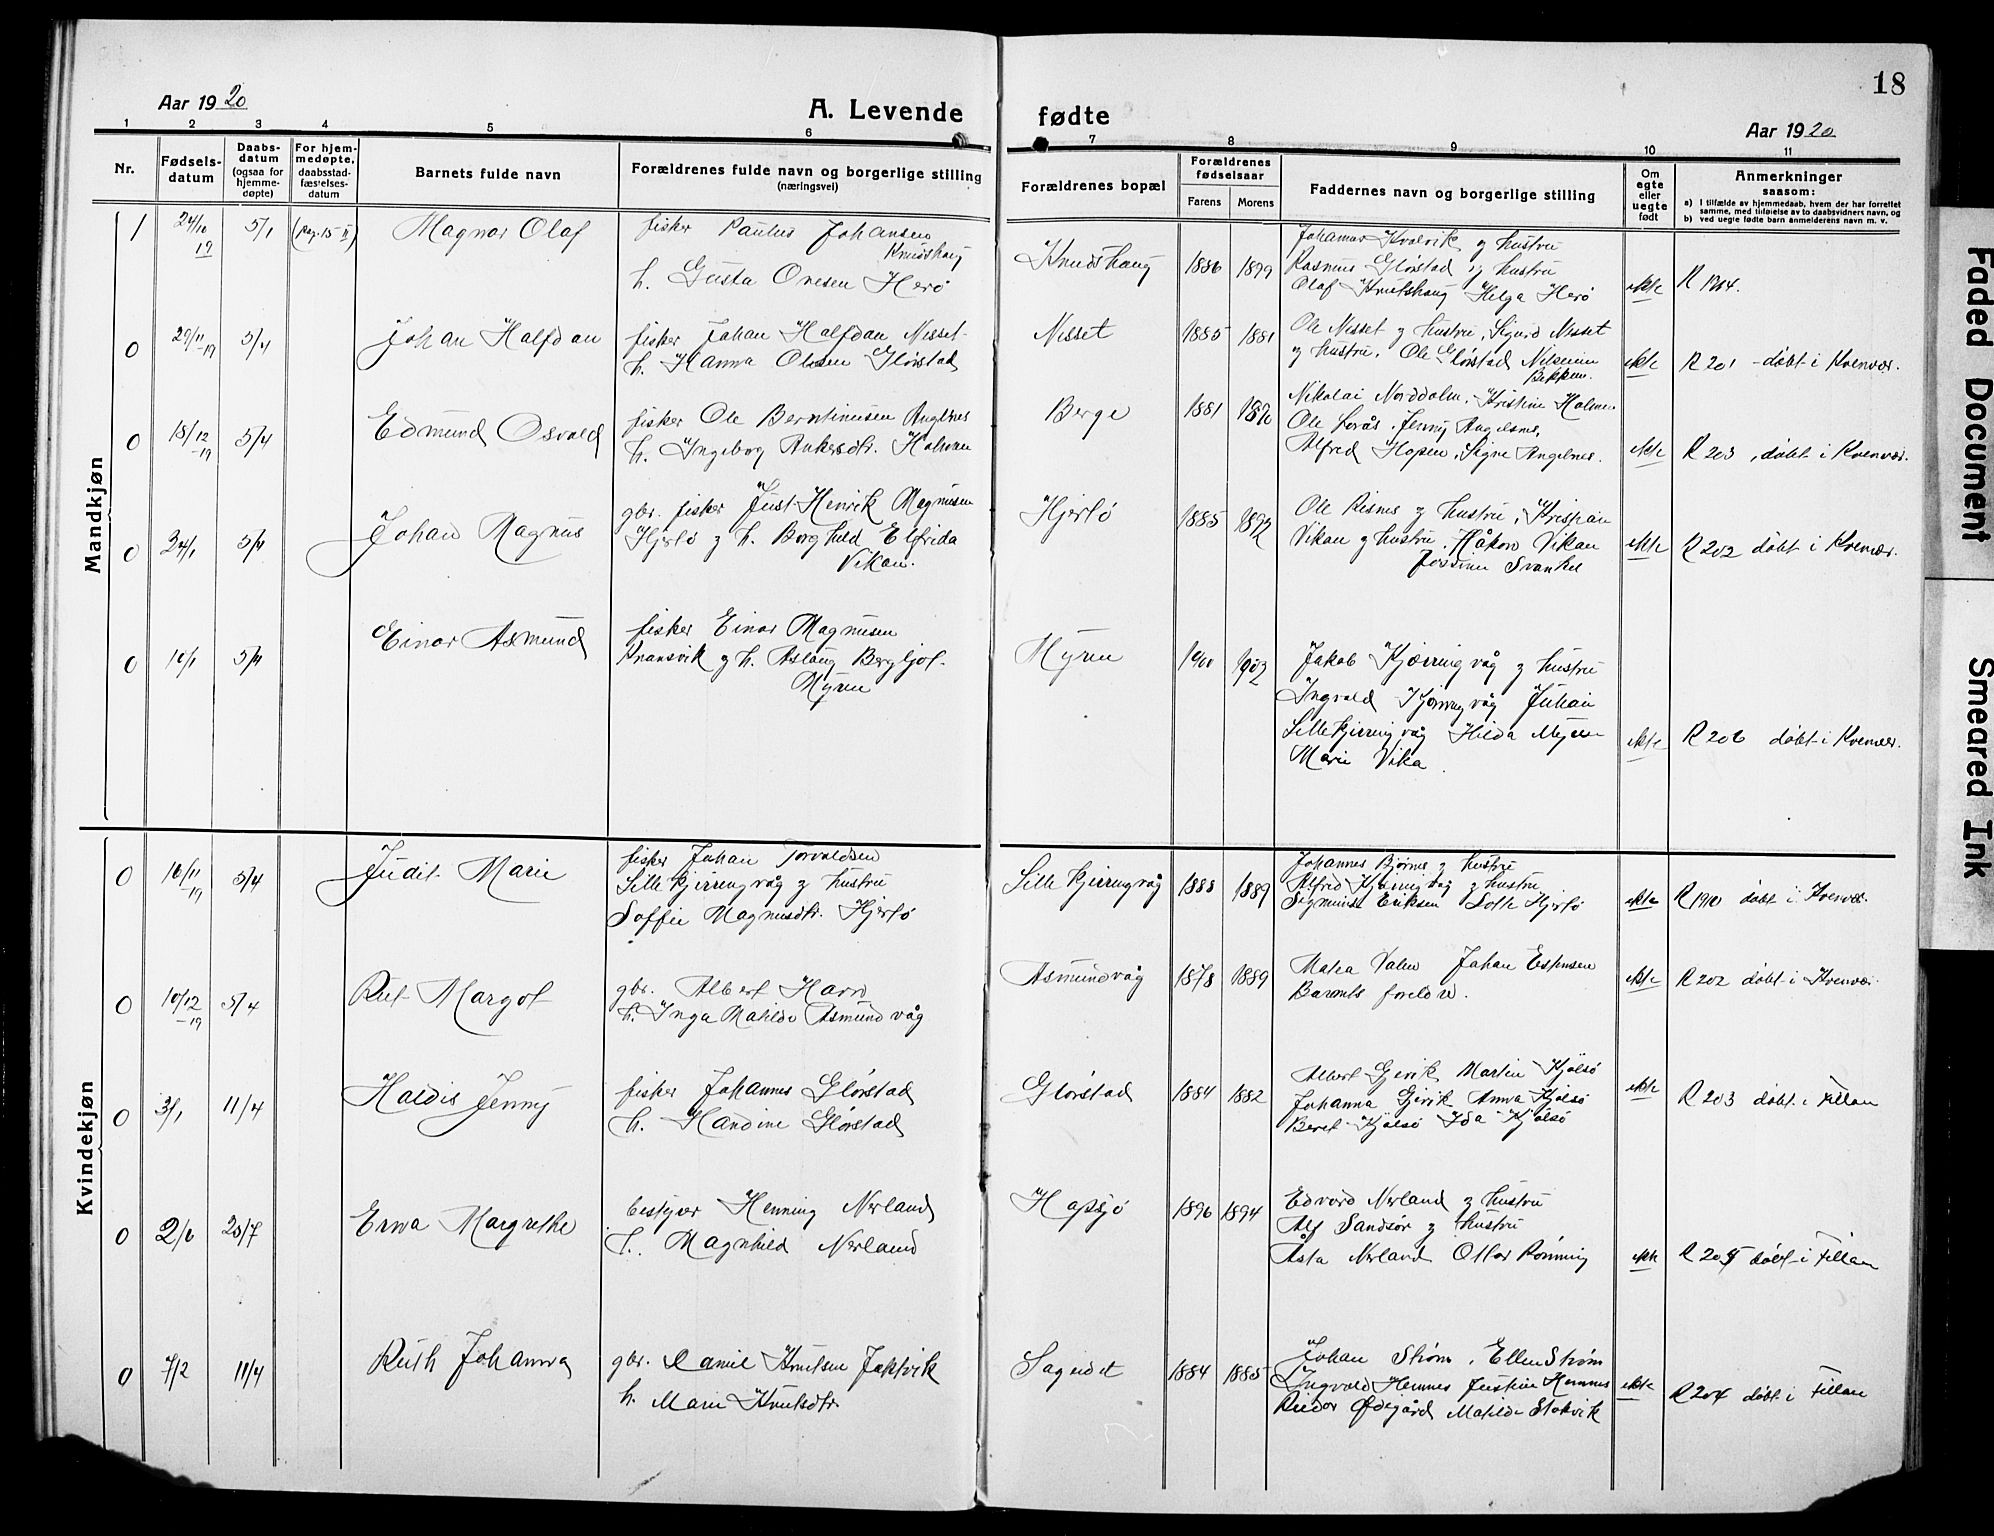 18
Aar 1920
A. Levende
fødte
Aar 1920
1 2 3 4 5 6 7 8 9 10 11
Nr.
Fødsels-
datum
Daabs-
datum
(ogsaa for
hjemme-
døpte)
For hjem-
medøpte,
daabsstad-
fæstelses-
datum
Barnets fulde navn
Forældrenes fulde navn og borgerlige stilling
(næringsvei)
Forældrenes bopæl
Forældrenes
fødselsaar
Farens Morens
Faddernes navn og borgerlige stilling
Om
egte
eller
uegte
født
Anmerkninger
saasom:
a) I tilfælde av hjemmedaab, hvem der har forrettet
samme, med tilføielse av to daabsvidners navn, og
b) ved uegte fødte barn anmelderens navn m. v.
Mandkjøn
1 24/10 19 5/1 Magnar Olaf
fisker Paulus Johansen
Knudshaug
h. Gusta Ovesen Herø
Knudshaug 1886 1899
Johannes Kvalvik og hustru
Rasmus Glørstad og hustru
Olaf Knutshaug Helga Herø
ekte
0 29/11 -19 5/4 Johan Halfdan
fisker Johan Halfdan Nesset
h. Hanna Olsen Glørstad
Nesset 1885 1881
Ole Nesset og hustru, Sigurd Nesset
og hustru, Ole Glørstad
Bekken.
ekte R 201 - døbt i Kvenvær.
0 18/12 -19 5/4 Edmund Osvald
fisker Ole Berntinusen Angelnes
h. Ingeborg Ankersdtr.
Berge 1881 1890
Nikolai Norddolm, Kristine Holmen
Ole Lerås, Jenny Angelsnes,
Alfred Hopen, Signe Angelnes.
ekte R 203, døbt i Kvenvær.
0 5/4 Johan Magnus
gbr. fisker Just Henrik Magnusen
Hjertø og h. Borghild Elfrida
Vikan.
Hjertø 1885 1892
Ole Risnes og hustru, Krispian
Vikan og hustru, Håkon Vikan
Svankel
ekte R 202 døbt i Kvenvær.
0 10/1 5/4 Einar Asmund
fisker Einar Magnusen
og h. Aslaug Bergljot
Myren
Myren 1900 1902
Jakob Kjærringvåg og hustru
Ingvald Kjerringvåg Johan
Lillekjerringvåg Hilda Myren
Marie Vika.
ekte R 206 døbt i Kvenvær.
Kvindekjøn
0 16/11 -19 5/4 Judit Marie
fisker Johan Torvaldsen
Lillekjerringvåg og hustru
Soffie Magnusdtr. Hjertø
Lillekjerringvåg 1888 1889
Johannes Bjørnes og hustru
Alfred Kjerringvåg og hustru
Eriksen Lotte Hjertø
ekte R 190 døbt i Kvenvær.
0 10/12 -19 5/4 Rut Margot
gbr. Albert Havn
h. Inga Matilde Asmundvåg
Asmundvåg 1878 1889
Matea Valen Johan Espensen
Barnets foreldre.
ekte R 202 døbt i Kvenvær.
0 3/1 11/4 Haldis Jenny
fisker Johannes Glørstad
h. Handine Glørstad
Glørstad 1884 1882
Albert Gjevik Martin Kjølsø
Johanna Gjevik Anna Kjølsø
Beret Kjølsø Ida Kjølsø
ekte R 203 døbt i Fillan
0 2/6 25/7 Erna Margrethe
bestyrer Henning Nerland
h. Magnhild Nerland
Hopsjø 1896 1894
Edvard Nerland og hustru
Alf Sandsør og hustru
Asta Nerland Ottar Rønning
ekte R 205 døbt i Fillan
0 7/2 11/4 Ruth Johanna
gbr. Daniel Knutsen Jøkvik
h. Marie Knutsdtr.
Sageidet 1884 1885
Johan Strøm, Ellen Strøm
Ingvald Hemnes Justine Hemnes
Reidar Ødegård Matilde Stokvik
ekte R 204 døbt i Fillan
Faded Document
Smeared Ink